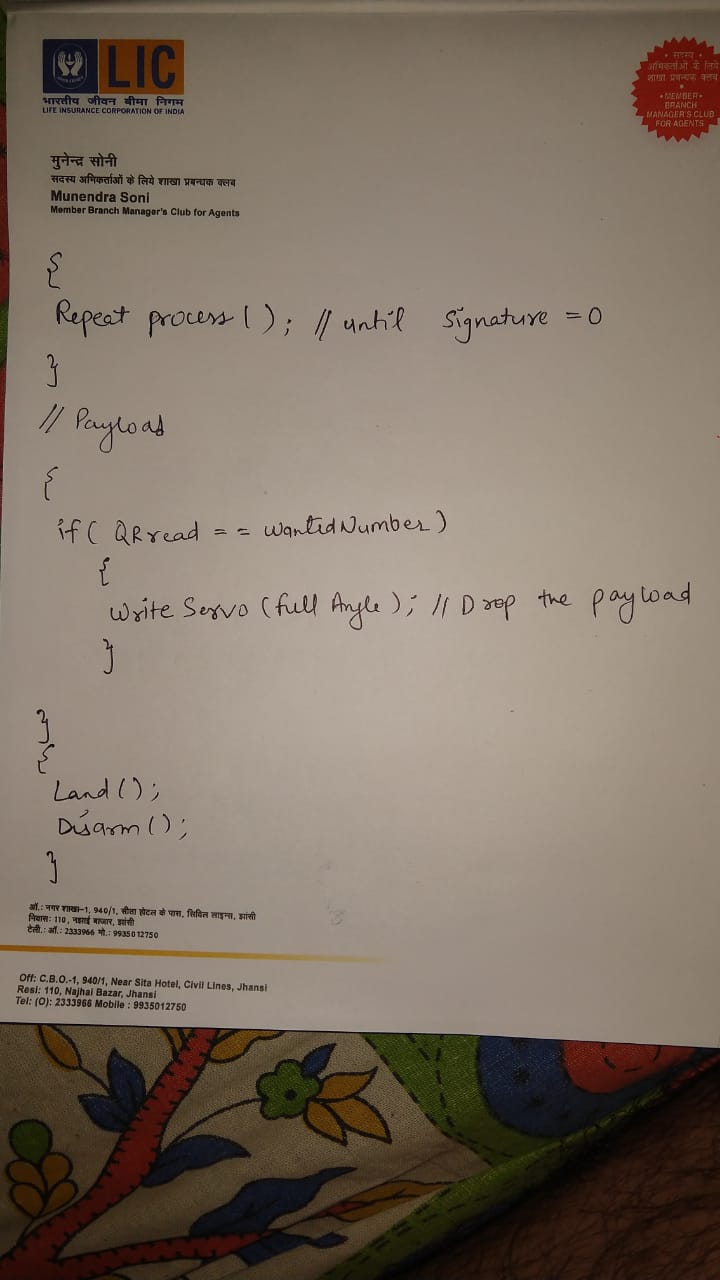 LIC
भारतीय जीवन बीमा निगम
LIFE INSURANCE CORPORATION OF INDIA
• सदस्य •
अभिकर्ताओं के लिये
शाखा प्रबन्धक क्लब
• MEMBER •
BRANCH
MANAGER'S CLUB
FOR AGENTS
मुनेन्द्र सोनी
सदस्य अभिकर्ताओं के लिये शाखा प्रबन्धक क्लब
Munendra Soni
Member Branch Manager's Club for Agents
{
Repeat process(); // until Signature = 0
}
// Payload
{
if( QRread == wantedNumber)
{
Write Servo (full Angle); // Drop the payload
}
}
{
Land();
Disarm();
}
ऑ.: नगर शाखा-1, 940/1, सीता होटल के पास, सिविल लाइन्स, झांसी
निवास: 110, नझाई बाजार, झांसी
टेली.: ऑ.: 2333966 मो.: 9935012750
Off: C.B.O.-1, 940/1, Near Sita Hotel, Civil Lines, Jhansi
Resi: 110, Najhai Bazar, Jhansi
Tel: (O): 2333966 Mobile : 9935012750